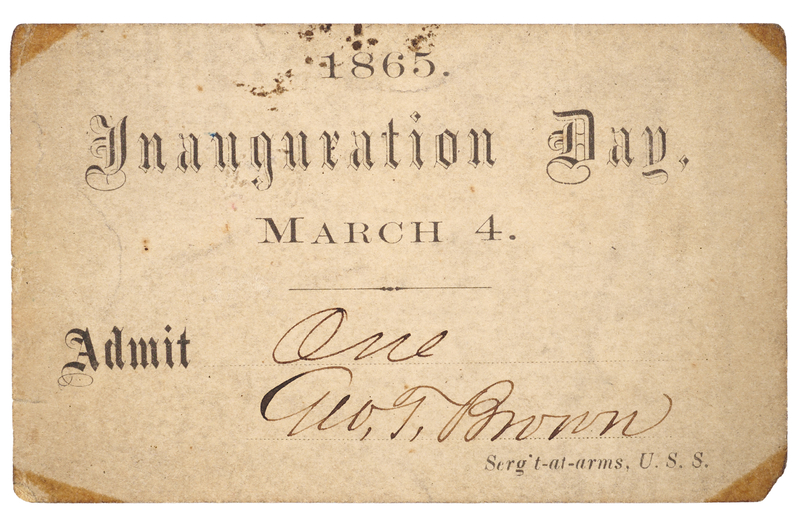 1865.
Inauguration Day,
MARCH 4.
Admit One
Geo. T. Brown
Serg't-at-arms, U. S. S.